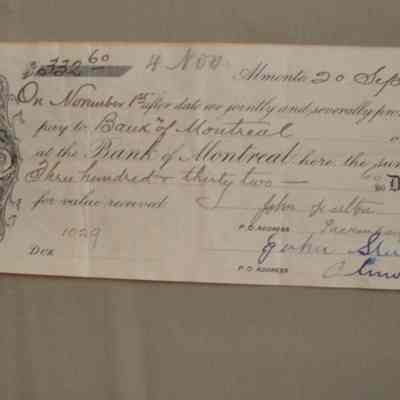 $332.60 4 Nov Almonte 20 Sep
On November 1st after date we jointly and severally pro
pay to Bank of Montreal
at the Bank of Montreal here the sum
Three hundred & thirty two — 60 D
for value received John
1029 P.O. ADDRESS Pakenham
Due John
P.O. ADDRESS